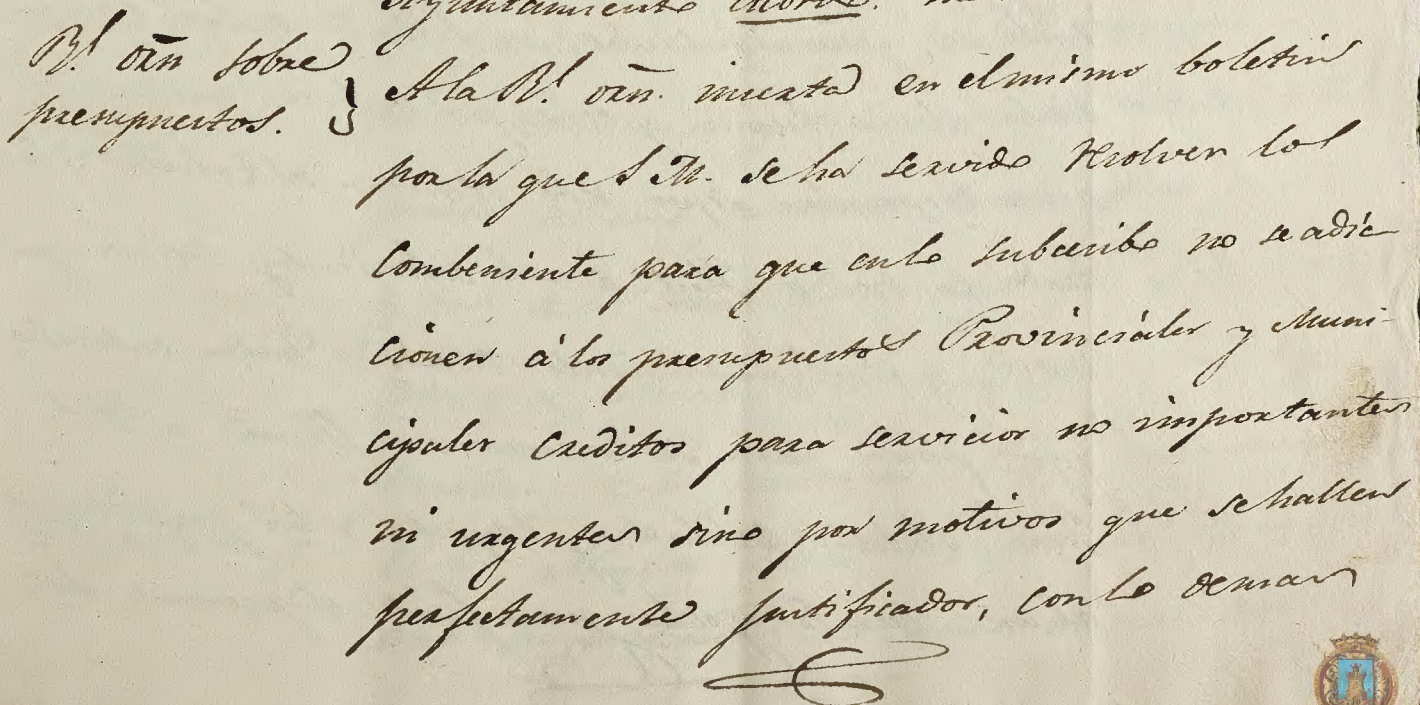 Ayuntamiento
Rl. orn sobre
presupuestos.
A la Rl. orn. inserta en el mismo boletin
por la que S. M. se ha servido resolver los
combeniente para que en lo subcecibo no se adic-
cionen á los presupuestos Provinciales y Muni-
cipales creditos para servicios no importantes
ni urgentes sino por motivos que se hallen
perfectamente justificados, con lo demas